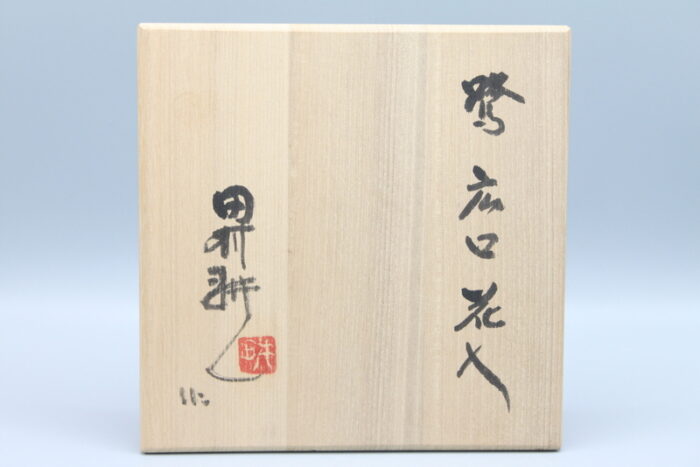 鷺 広口花入
田村耕一
作